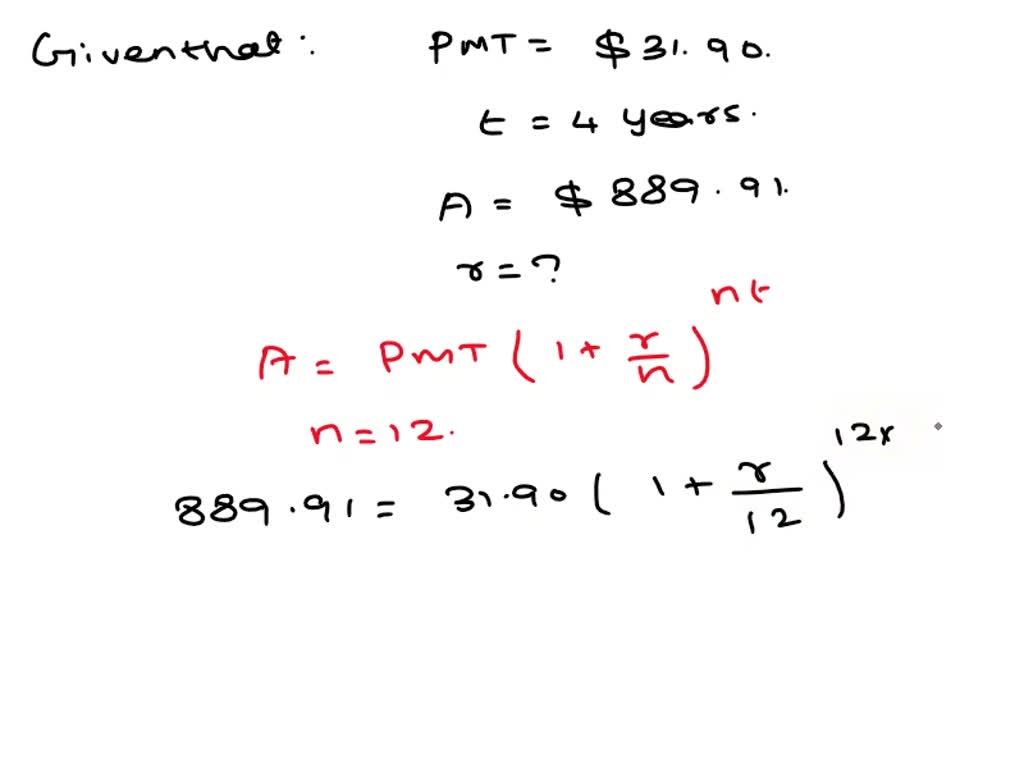 Giventhat: PMT = $31.90.
t = 4 years.
A = $889.91.
r = ?
A = PMT ( 1 + r/n )^nt
n = 12.
889.91 = 31.90 ( 1 + r/12 )^12x